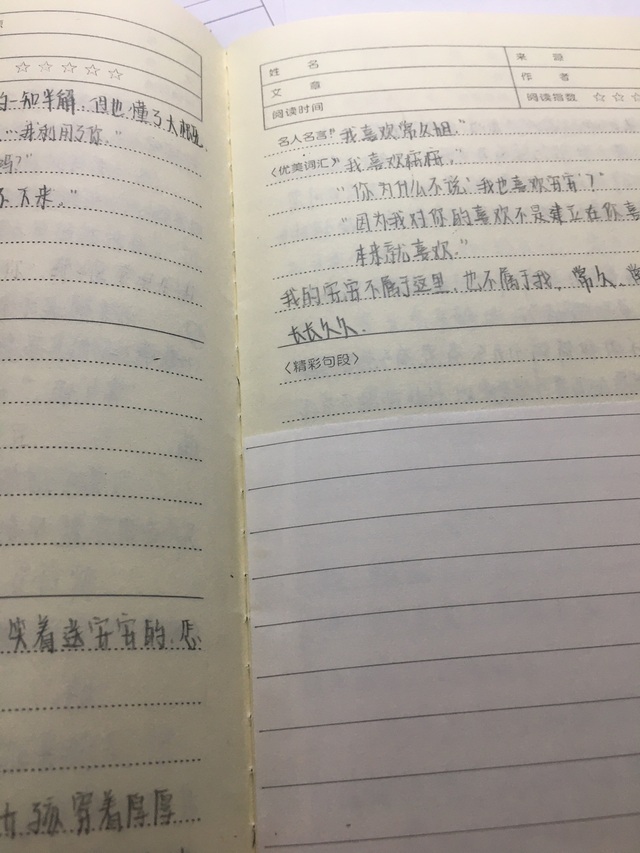 ☆☆☆☆☆
的一知半解,但也懂了大部分
…我利用了你。"
吗?"
不下来。"
笑着送安安的.悲
女孩穿着厚厚
姓 名
来 源
文 章
作 者
阅读时间
阅读指数 ☆ ☆ ☆
名人名言 "我喜欢常久姐。"
〈优美词汇〉"我喜欢
"你为什么不说'我也喜欢安安'?"
"因为我对你的喜欢不是建立在你喜
本来就喜欢。"
我的安安不属于这里,也不属于我,常久,常
长长久久.
〈精彩句段〉